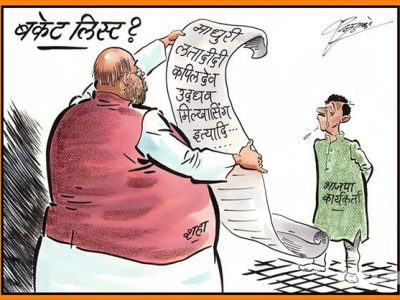 बकेट लिस्ट?
माधुरी
लतादीदी
कपिल देव
उद्धव
मिल्खासिंग
इत्यादि...
शहा
भाजपा
कार्यकर्ता